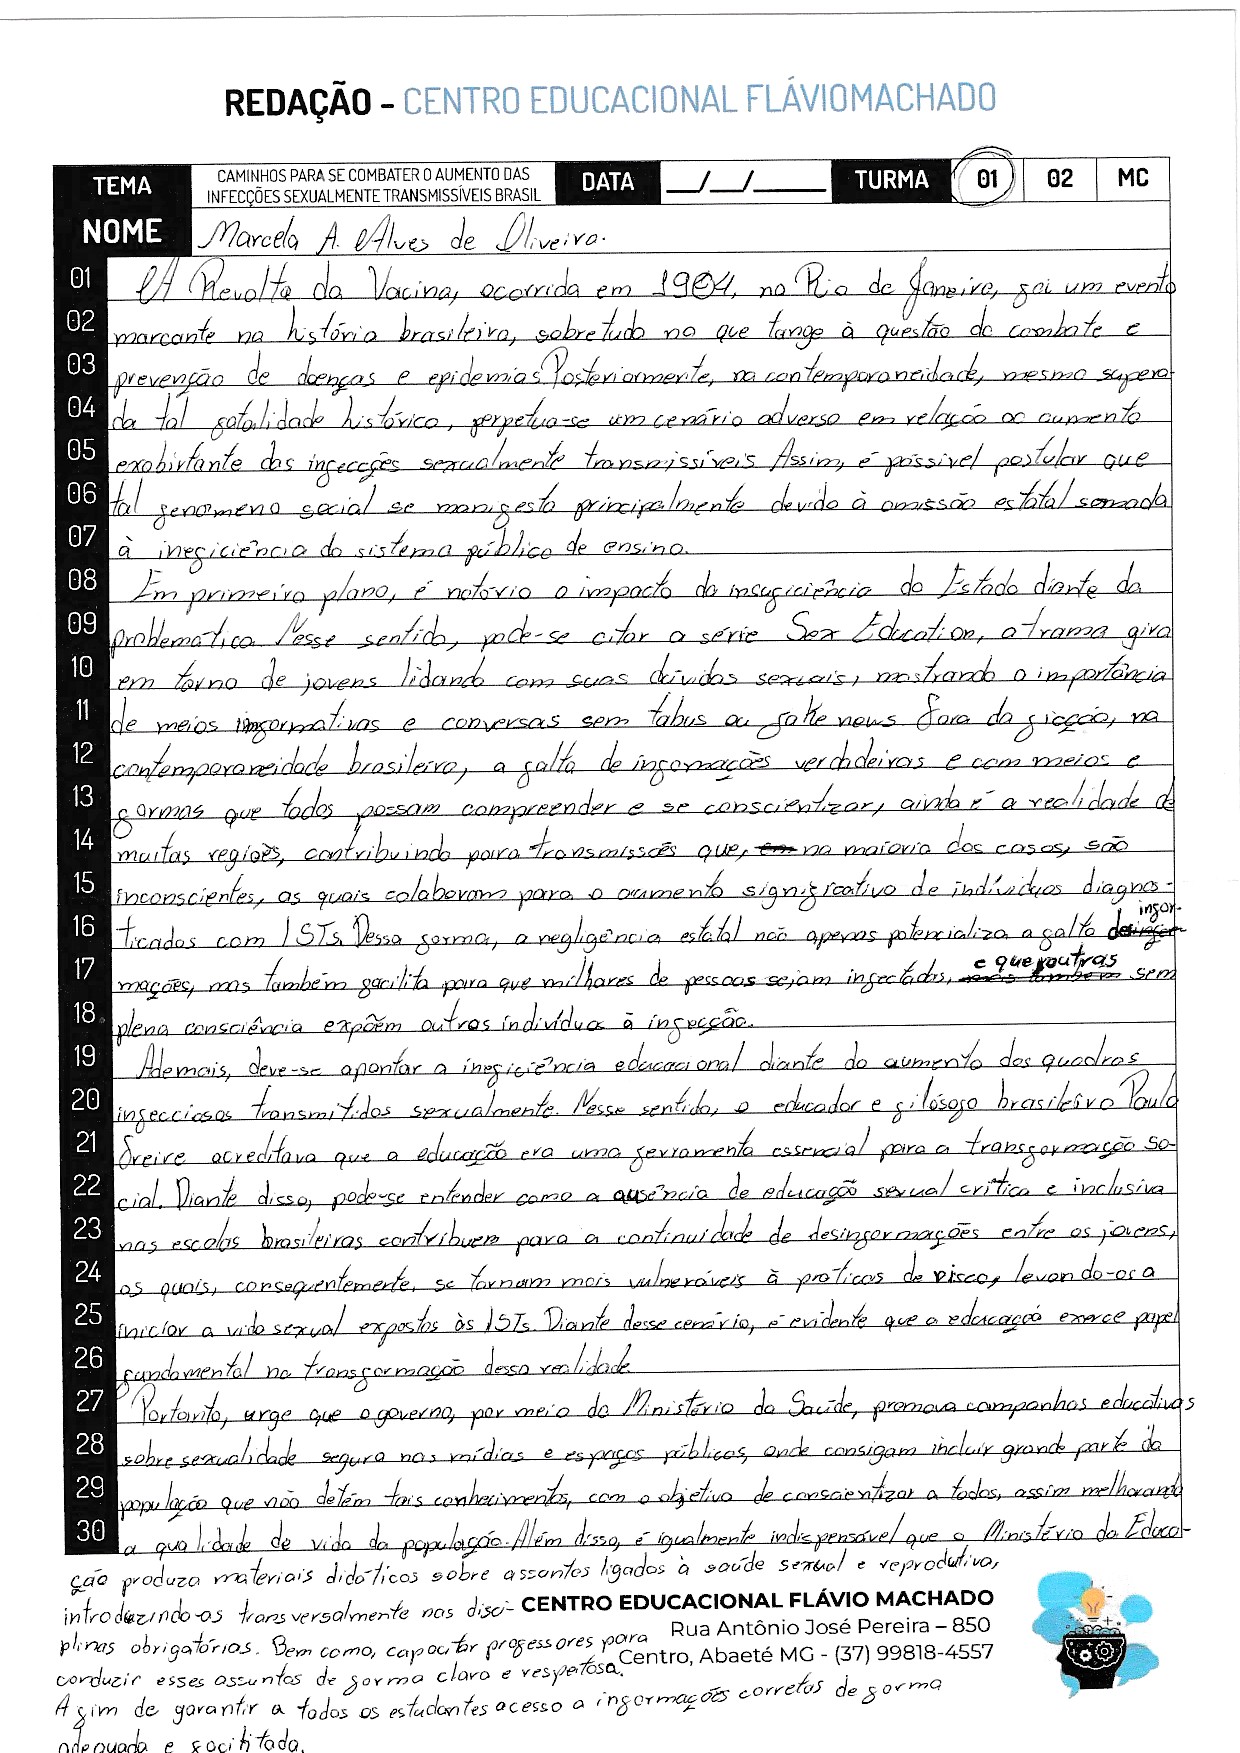 REDAÇÃO - CENTRO EDUCACIONAL FLÁVIOMACHADO
TEMA CAMINHOS PARA SE COMBATER O AUMENTO DAS INFECÇÕES SEXUALMENTE TRANSMISSÍVEIS BRASIL DATA __/__/____ TURMA 01 02 MC
NOME Marcela A. Alves de Oliveira.
01 A Revolta da Vacina, ocorrida em 1904, no Rio de Janeiro, foi um evento
02 marcante na história brasileira, sobretudo no que tange à questão do combate e
03 prevenção de doenças e epidemias. Posteriormente, na contemporaneidade, mesmo supera-
04 da tal fatalidade histórica, perpetua-se um cenário adverso em relação ao aumento
05 exobirtante das infecções sexualmente transmissíveis. Assim, é possível postular que
06 tal fenomeno social se manifesta principalmente devido à omissão estatal somada
07 à ineficiência do sistema público de ensino.
08 Em primeiro plano, é notório o impacto da insuficiência do Estado diante da
09 problemática. Nesse sentido, pode-se citar a série Sex Education, a trama gira
10 em torno de jovens lidando com suas dúvidas sexuais, mostrando a importância
11 de meios informativos e conversas sem tabus ou fake news. Fora da ficção, na
12 contemporaneidade brasileira, a falta de informações verdadeiras e com meios e
13 formas que todos possam compreender e se conscientizar, ainda é a realidade de
14 muitas regiões, contribuindo para transmissões que, em na maioria dos casos, são
15 inconscientes, as quais colaboram para o aumento significativo de indivíduos diagnos-
16 ticados com ISTs. Dessa forma, a negligência estatal não apenas potencializa a falta desinfor infor-
17 mações, mas também facilita para que milhares de pessoas sejam infectadas, mas também e que outras sem
18 plena consciência expõem outros indivíduos à infecção.
19 Ademais, deve-se apontar a ineficiência educacional diante do aumento dos quadros
20 infecciosos transmitidos sexualmente. Nesse sentido, o educador e filósofo brasileiro Paulo
21 Freire acreditava que a educação era uma ferramenta essencial para a transformação so-
22 cial. Diante disso, pode-se entender como a ausência de educação sexual crítica e inclusiva
23 nas escolas brasileiras contribuem para a continuidade de desinformações entre os jovens,
24 os quais, consequentemente, se tornam mais vulneráveis à práticas de risco, levando-os a
25 iniciar a vida sexual expostos às ISTs. Diante desse cenário, é evidente que a educação exerce papel
26 fundamental na transformação dessa realidade
27 Portanto, urge que o governo, por meio do Ministério da Saúde, promova campanhas educativas
28 sobre sexualidade segura nas mídias e espaços públicos, onde consigam incluir grande parte da
29 população que não detém tais conhecimentos, com o objetivo de conscientizar a todos, assim melhorando
30 a qualidade de vida da população. Além disso, é igualmente indispensável que o Ministério da Educa-
ção produza materiais didáticos sobre assuntos ligados à saúde sexual e reprodutiva,
introduzindo-os transversalmente nas disci-
plinas obrigatórias. Bem como, capacitar professores para
conduzir esses assuntos de forma clara e respeitosa.
A fim de garantir a todos os estudantes acesso a informações corretas de forma
adequada e facilitada.
CENTRO EDUCACIONAL FLÁVIO MACHADO
Rua Antônio José Pereira – 850
Centro, Abaeté MG - (37) 99818-4557